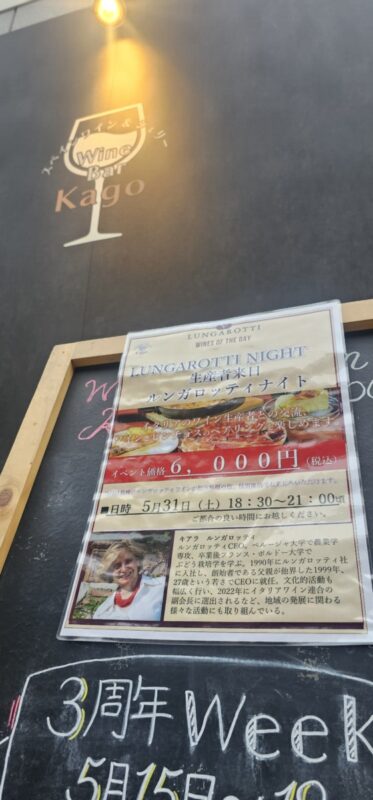 スペインワイン&シェリー
Wine
Bar
Kago
LUNGAROTTI
WINES OF THE DAY
LUNGAROTTI NIGHT
生産者来日
ルンガロッティナイト
イタリアのワイン生産者との交流、
ワインとビンチョスのペアリングが楽しめます
イベント価格 6,000円(税込)
■日時 5月31日(土)18:30~21:00頃
ご都合の良い時間にお越しください。
キアラ ルンガロッティ
ルンガロッティCEO。ペルージャ大学で農業学
専攻、卒業後フランス・ボルドー大学で
ぶどう栽培学を学ぶ。1990年にルンガロッティ社
に入社し、創始者である父親が他界した1999年、
27歳という若さでCEOに就任。文化的活動も
幅広く行い、2022年にイタリアワイン連合の
副会長に選出されるなど、地域の発展に関わる
様々な活動にも取り組んでいる。
3周年 Week
5月15日~19